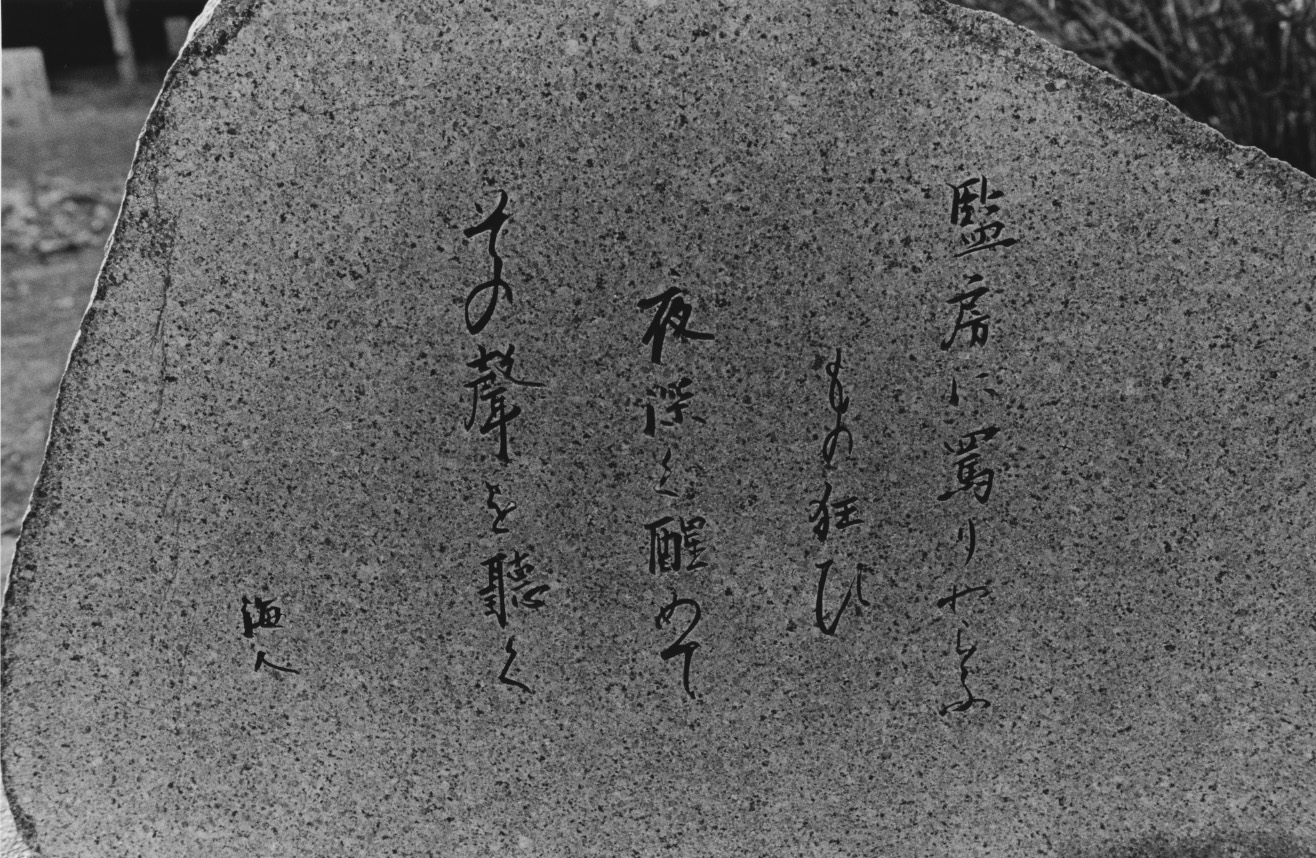 監房に罵りやまぬ
もの狂ひ
夜深く醒めて
その聲を聽く
海人